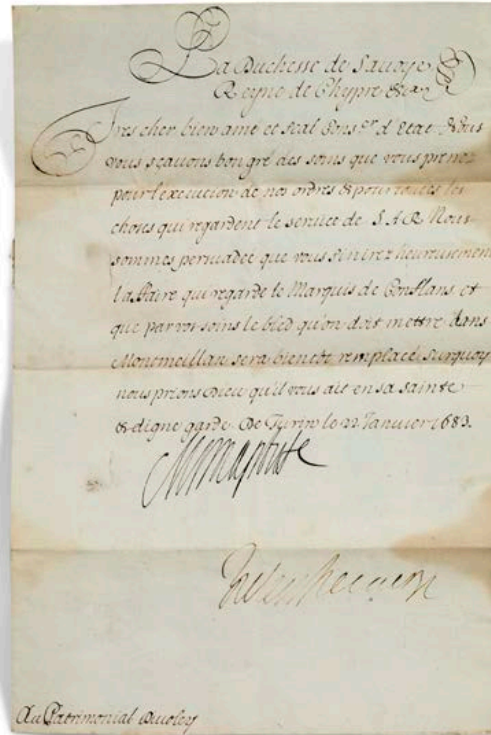 La Duchesse de Savoye
Reyne de Chypre &ca
Tres cher bien amé et feal Cons.er d'Etat Nous
vous sçauons bon gré des soins que vous prenez
pour l'execucion de nos ordres & pour toutes les
choses qui regardent le service de S.A.R. Nous
sommes persuadée que vous finirez heureusement
l'affaire qui regarde le Marquis de Conflans et
que par vos soins le bled qu'on doit mettre dans
Montmeillan sera bientôt remplacé. Surquoy
nous prions Dieu qu'il vous ait en sa sainte
& digne garde. De Turin le 22 Janvier 1683.
Au Patrimonial